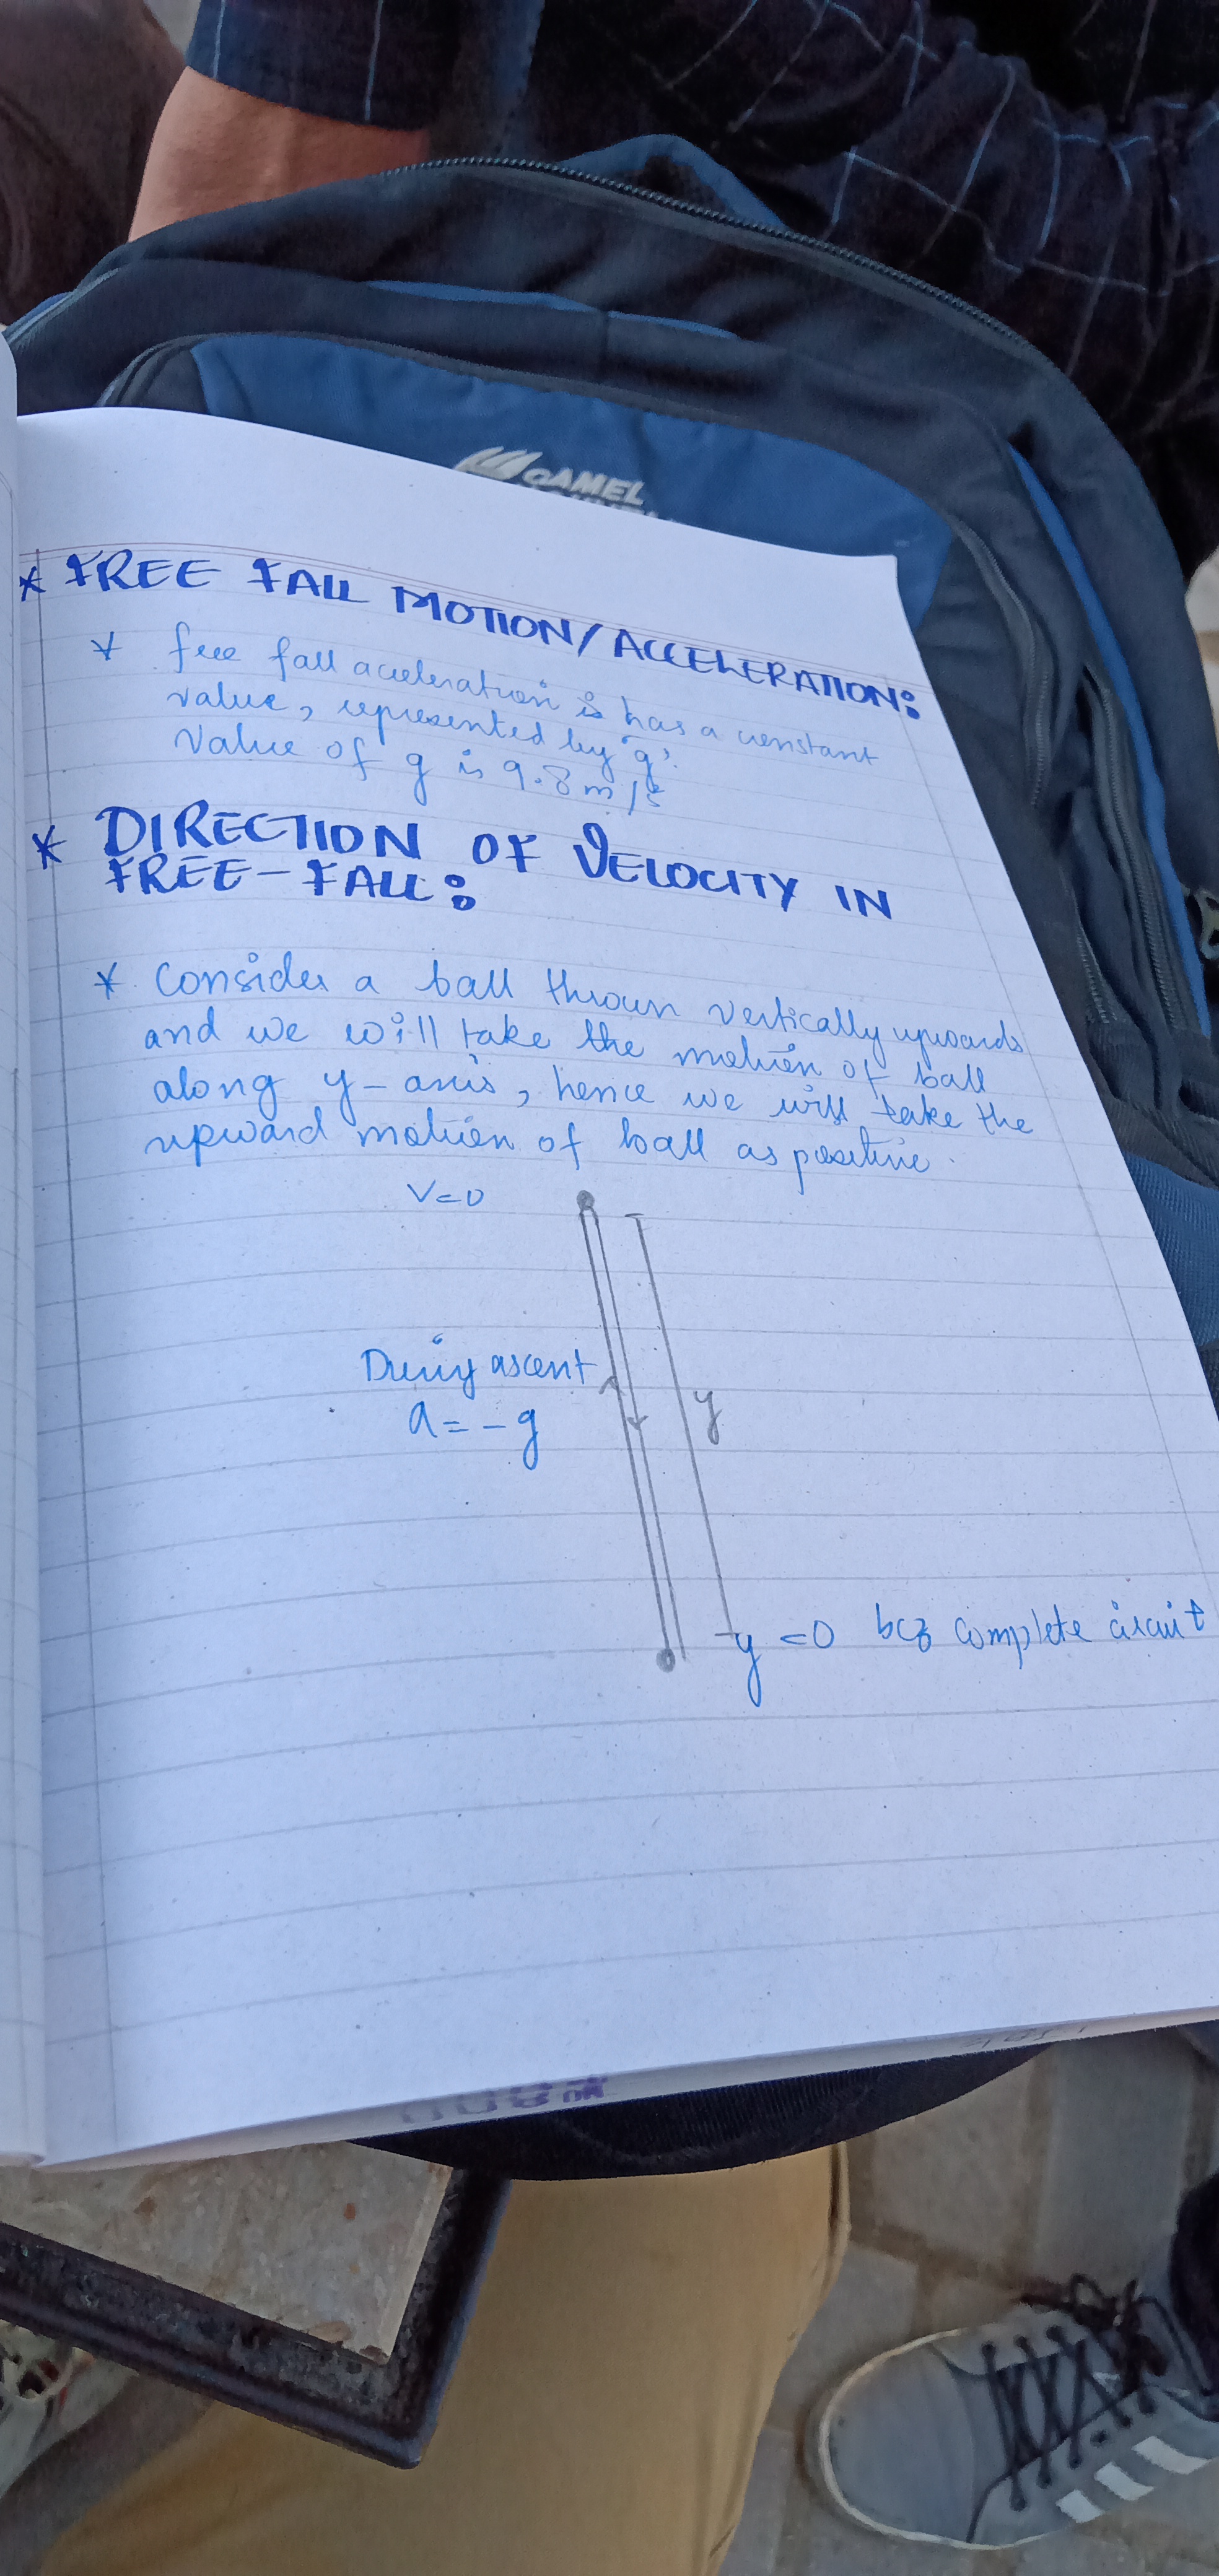 CAMEL
* FREE FALL MOTION/ACCELERATION:
* free fall acceleration is has a constant
value, represented by 'g'.
Value of g is 9.8 m/s
* DIRECTION OF VELOCITY IN
FREE-FALL:
* Consider a ball thrown vertically upwards
and we will take the motion of ball
along y-axis, hence we will take the
upward motion of ball as positive.
V=0
During ascent
a = -g
y
y = 0 bcz complete circuit